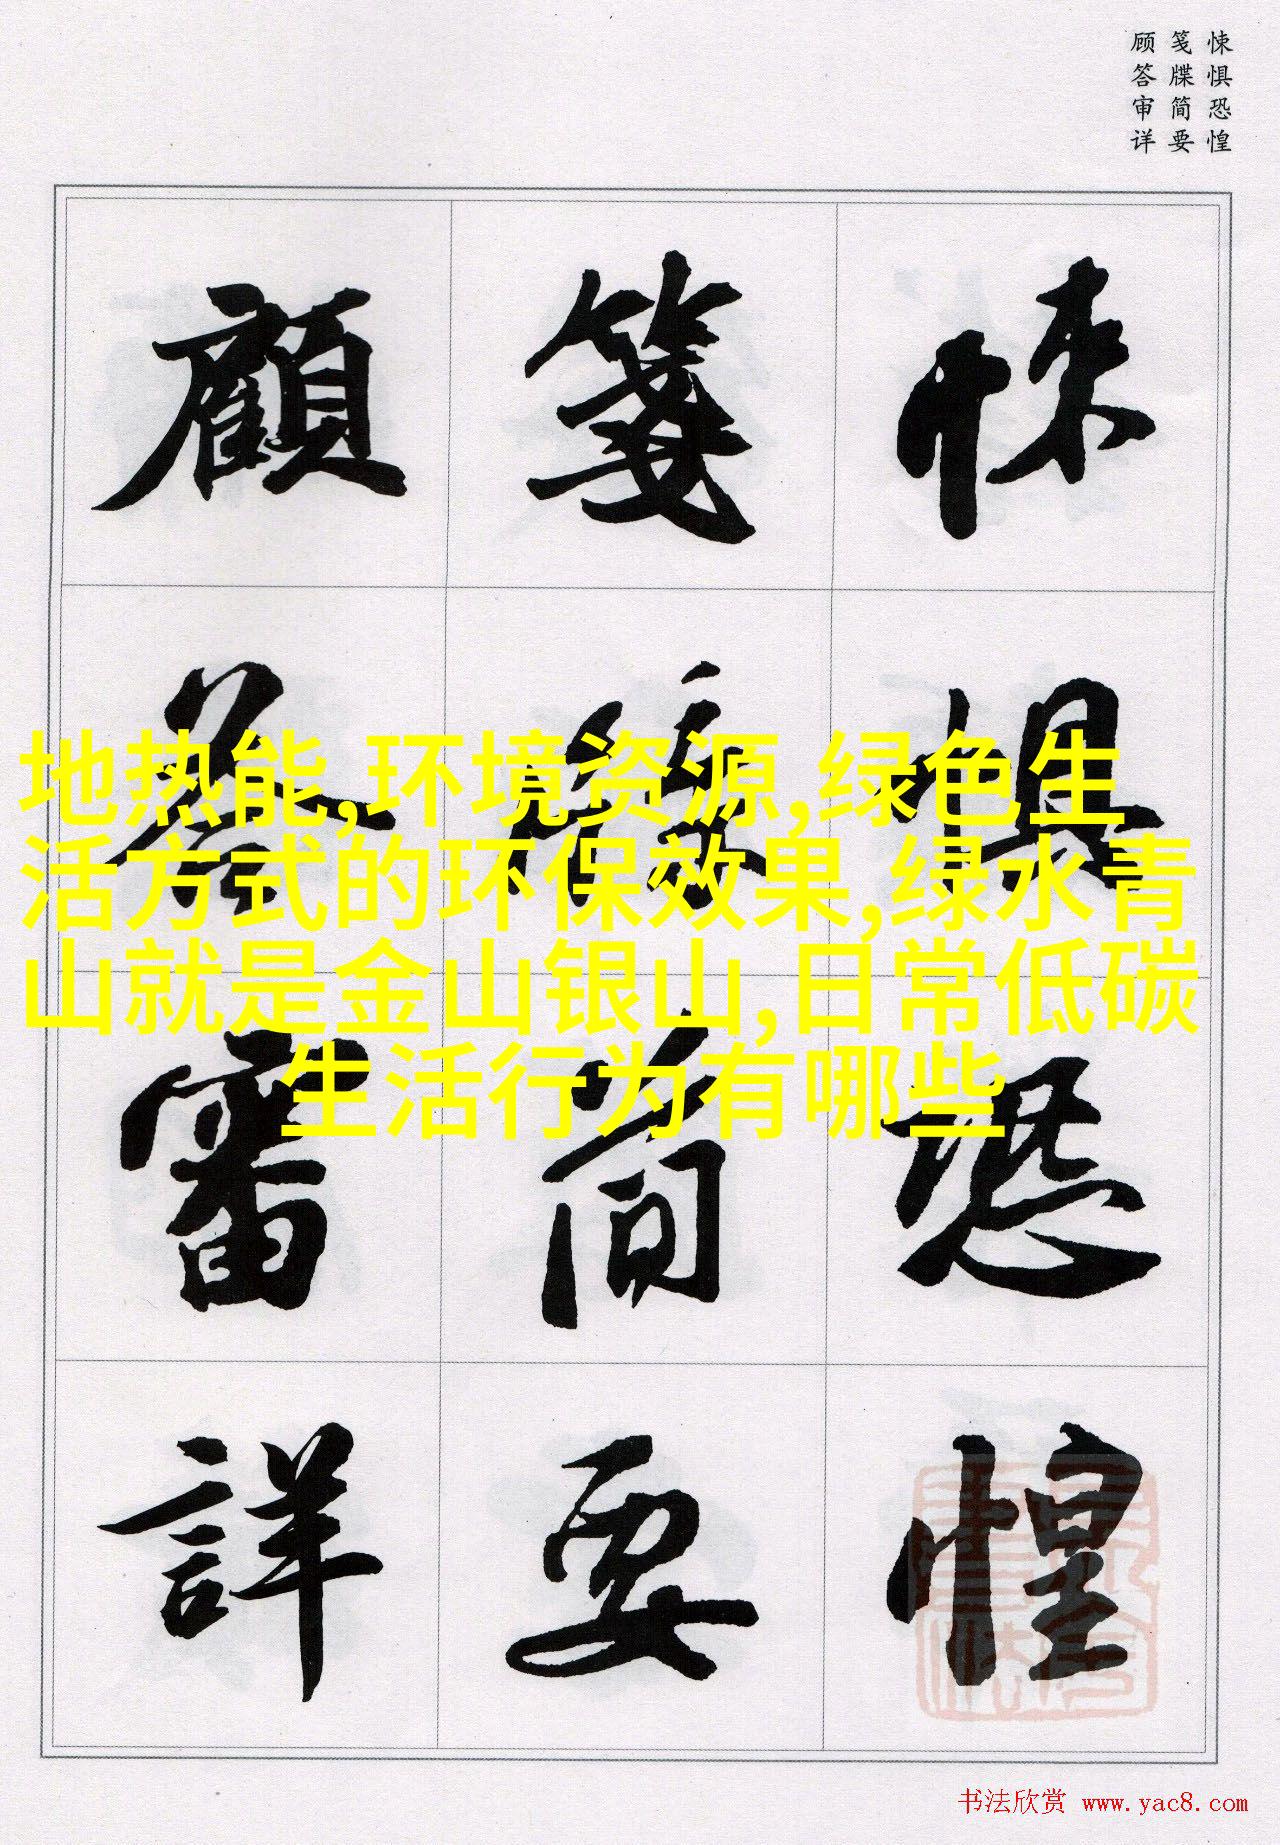 悚惧恐惶
笺牒简要
顾答审详
悚惧恐惶
笺牒简要
顧答審詳
地热能,环境资源,绿色生
活方式的环保效果,绿水青
山就是金山银山,日常低碳
生活行为有哪些
书法欣赏 www.yac8.com